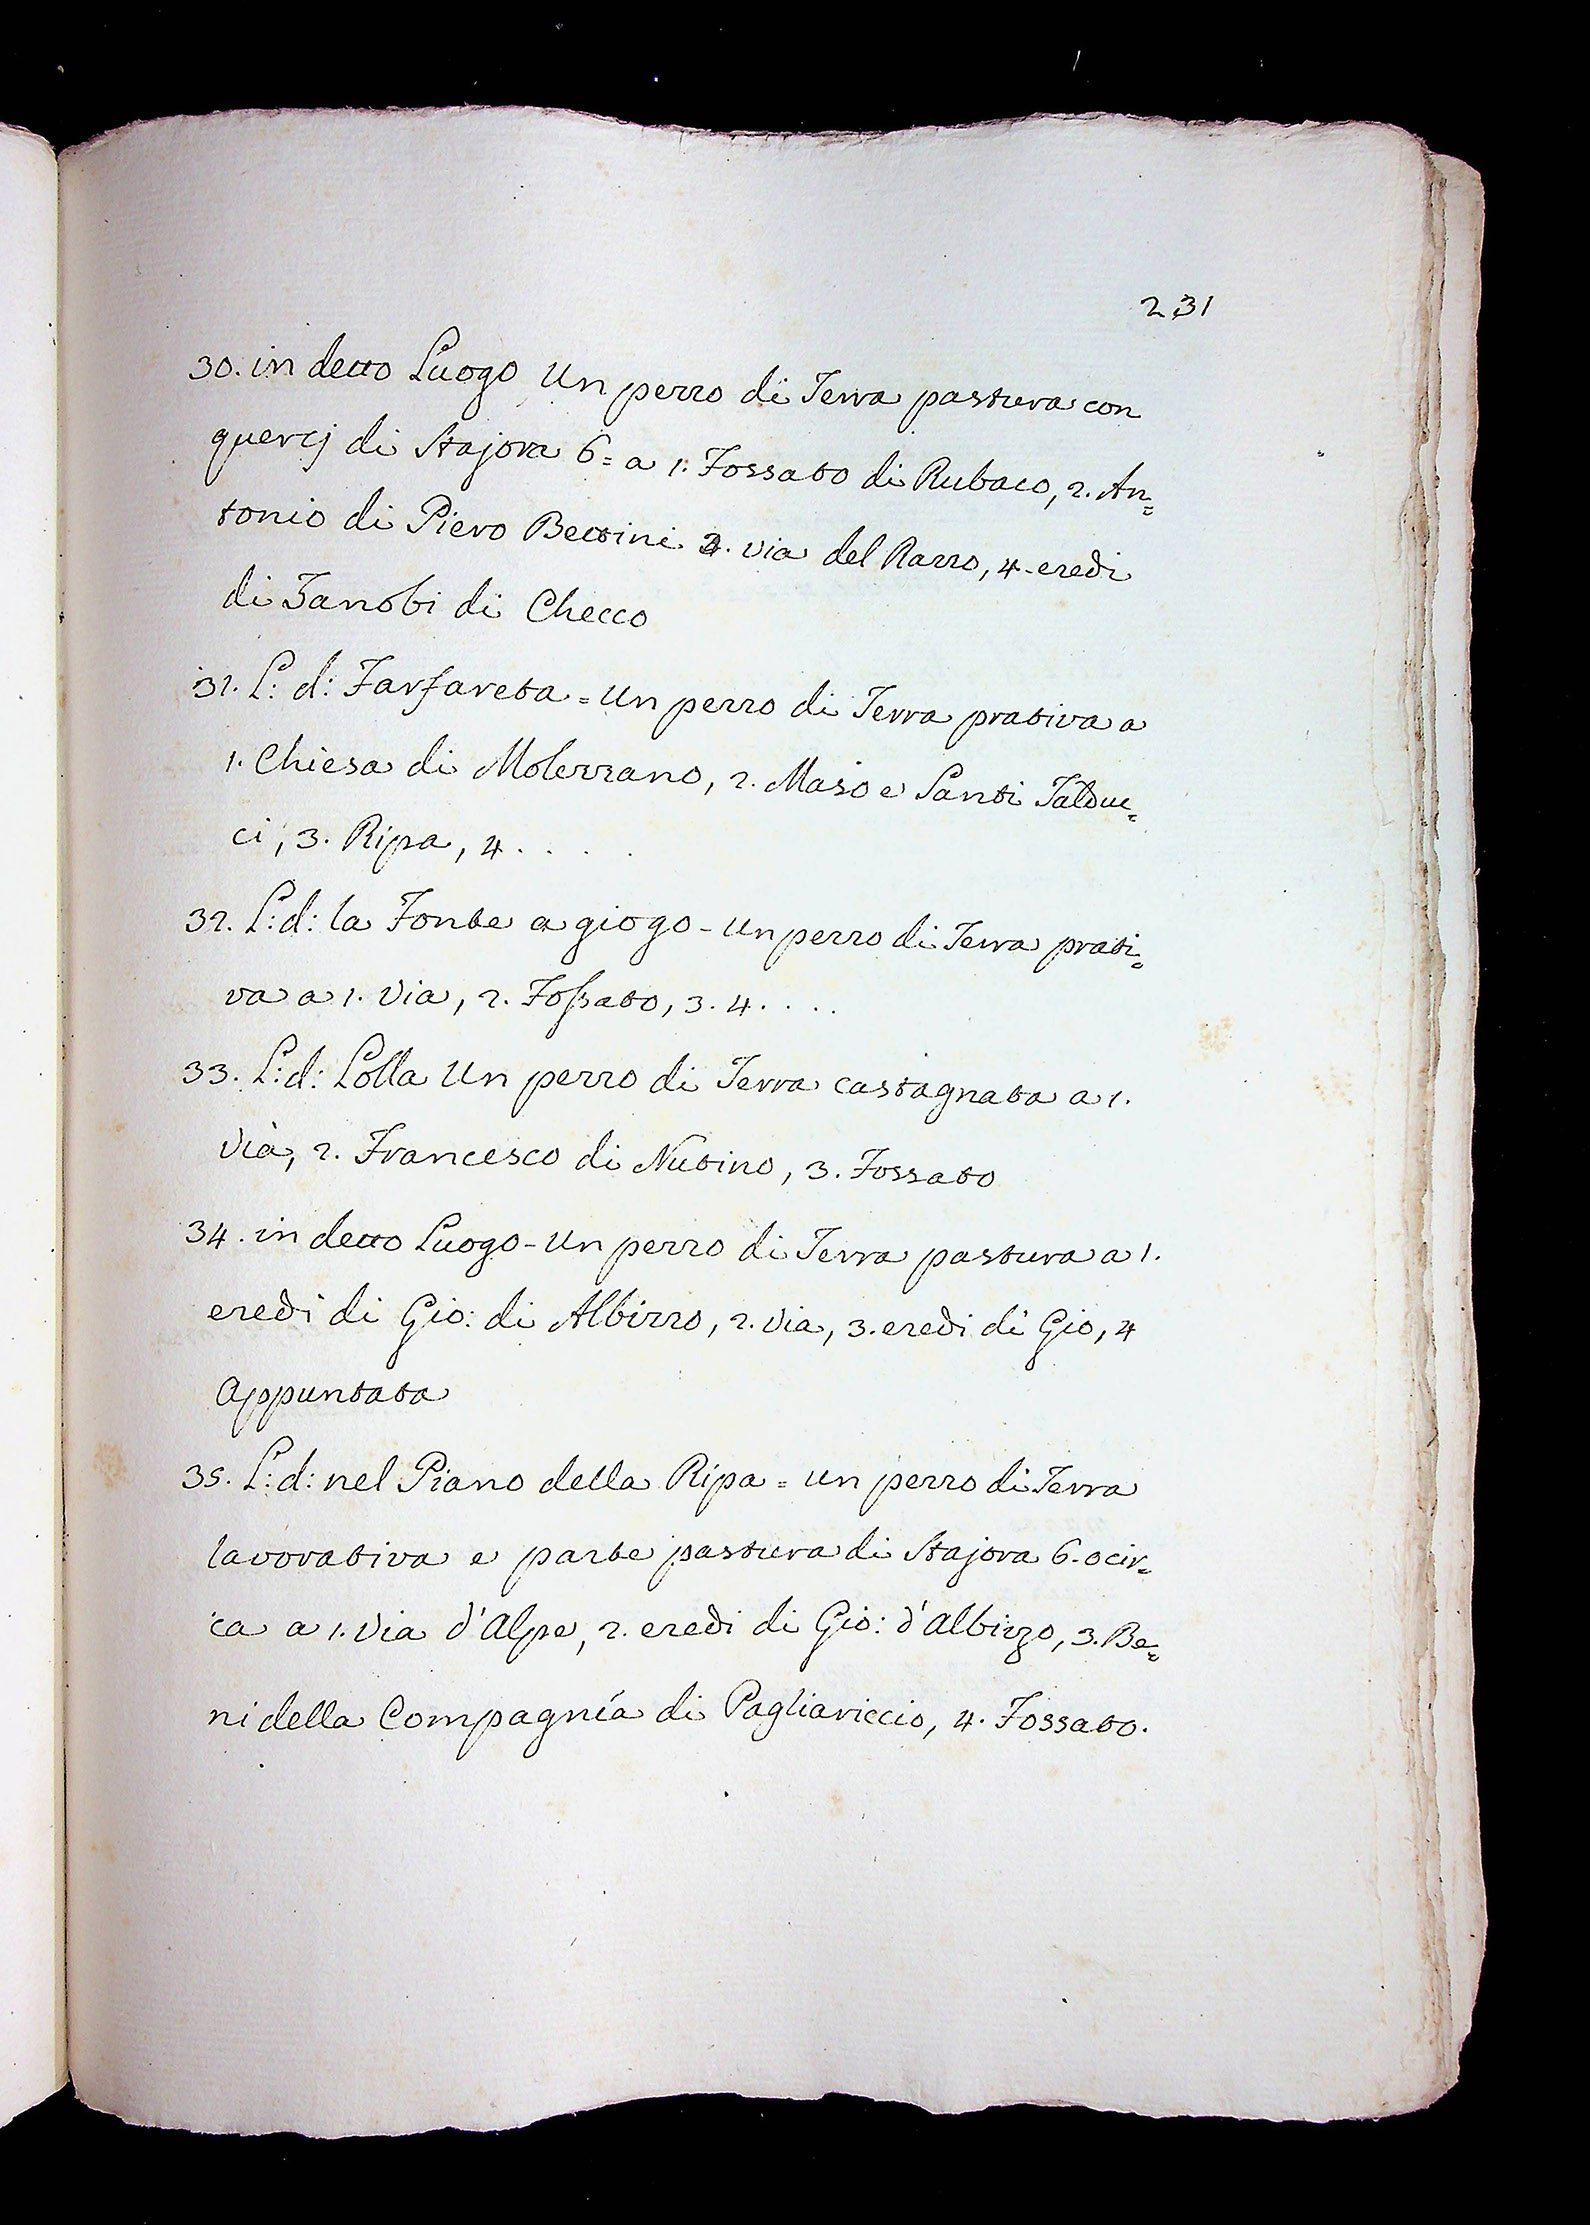 231
30. in detto Luogo Un pezzo di Terra pastura con
quercj di Stajora 6= a 1. Fossato di Rubaco, 2. An=
tonio di Piero Bettini 3. via del Razzo, 4. eredi
di Zanobi di Checco
31. L: d: Farfareta = Un pezzo di Terra prativa a
1. Chiesa di Molezzano, 2. Maso e Santi Talduc=
ci, 3. Ripa, 4 . . . .
32. L: d: la Fonte a giogo - Un pezzo di Terra prati=
va a 1. Via, 2. Fossato, 3. 4. . . .
33. L: d: Lolla Un pezzo di Terra castagnata a 1.
Via, 2. Francesco di Nutino, 3. Fossato
34. in detto Luogo - Un pezzo di Terra pastura a 1.
eredi di Gio: di Albizzo, 2. Via, 3. eredi di Gio, 4
Appuntata
35. L: d: nel Piano della Ripa = Un pezzo di Terra
lavorativa e parte pastura di Stajora 6. o cir=
ca a 1. Via d'Alpe, 2. eredi di Gio: d'Albizzo, 3. Be=
ni della Compagnía di Pagliariccio, 4. Fossato.